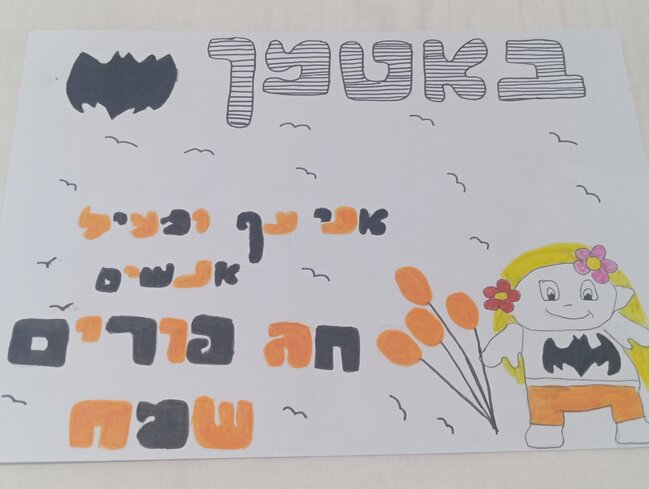 באטמן
אני עף ומציל
אנשים
חג פורים
שמח